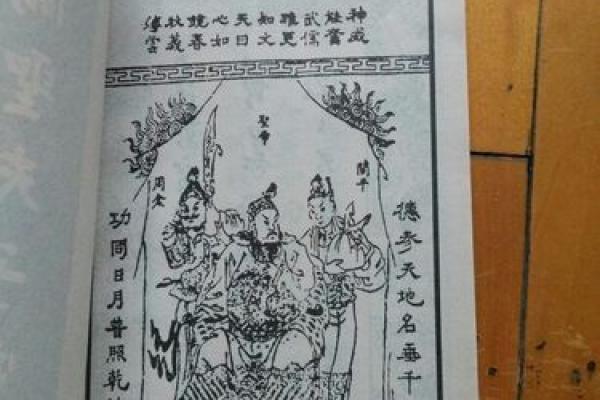 神威
能奮
武儒
雅更
知文
天日
心如
鏡春
秋義
薄雲
聖帝
關平
周倉
德參天地名垂千
功同日月普照乾